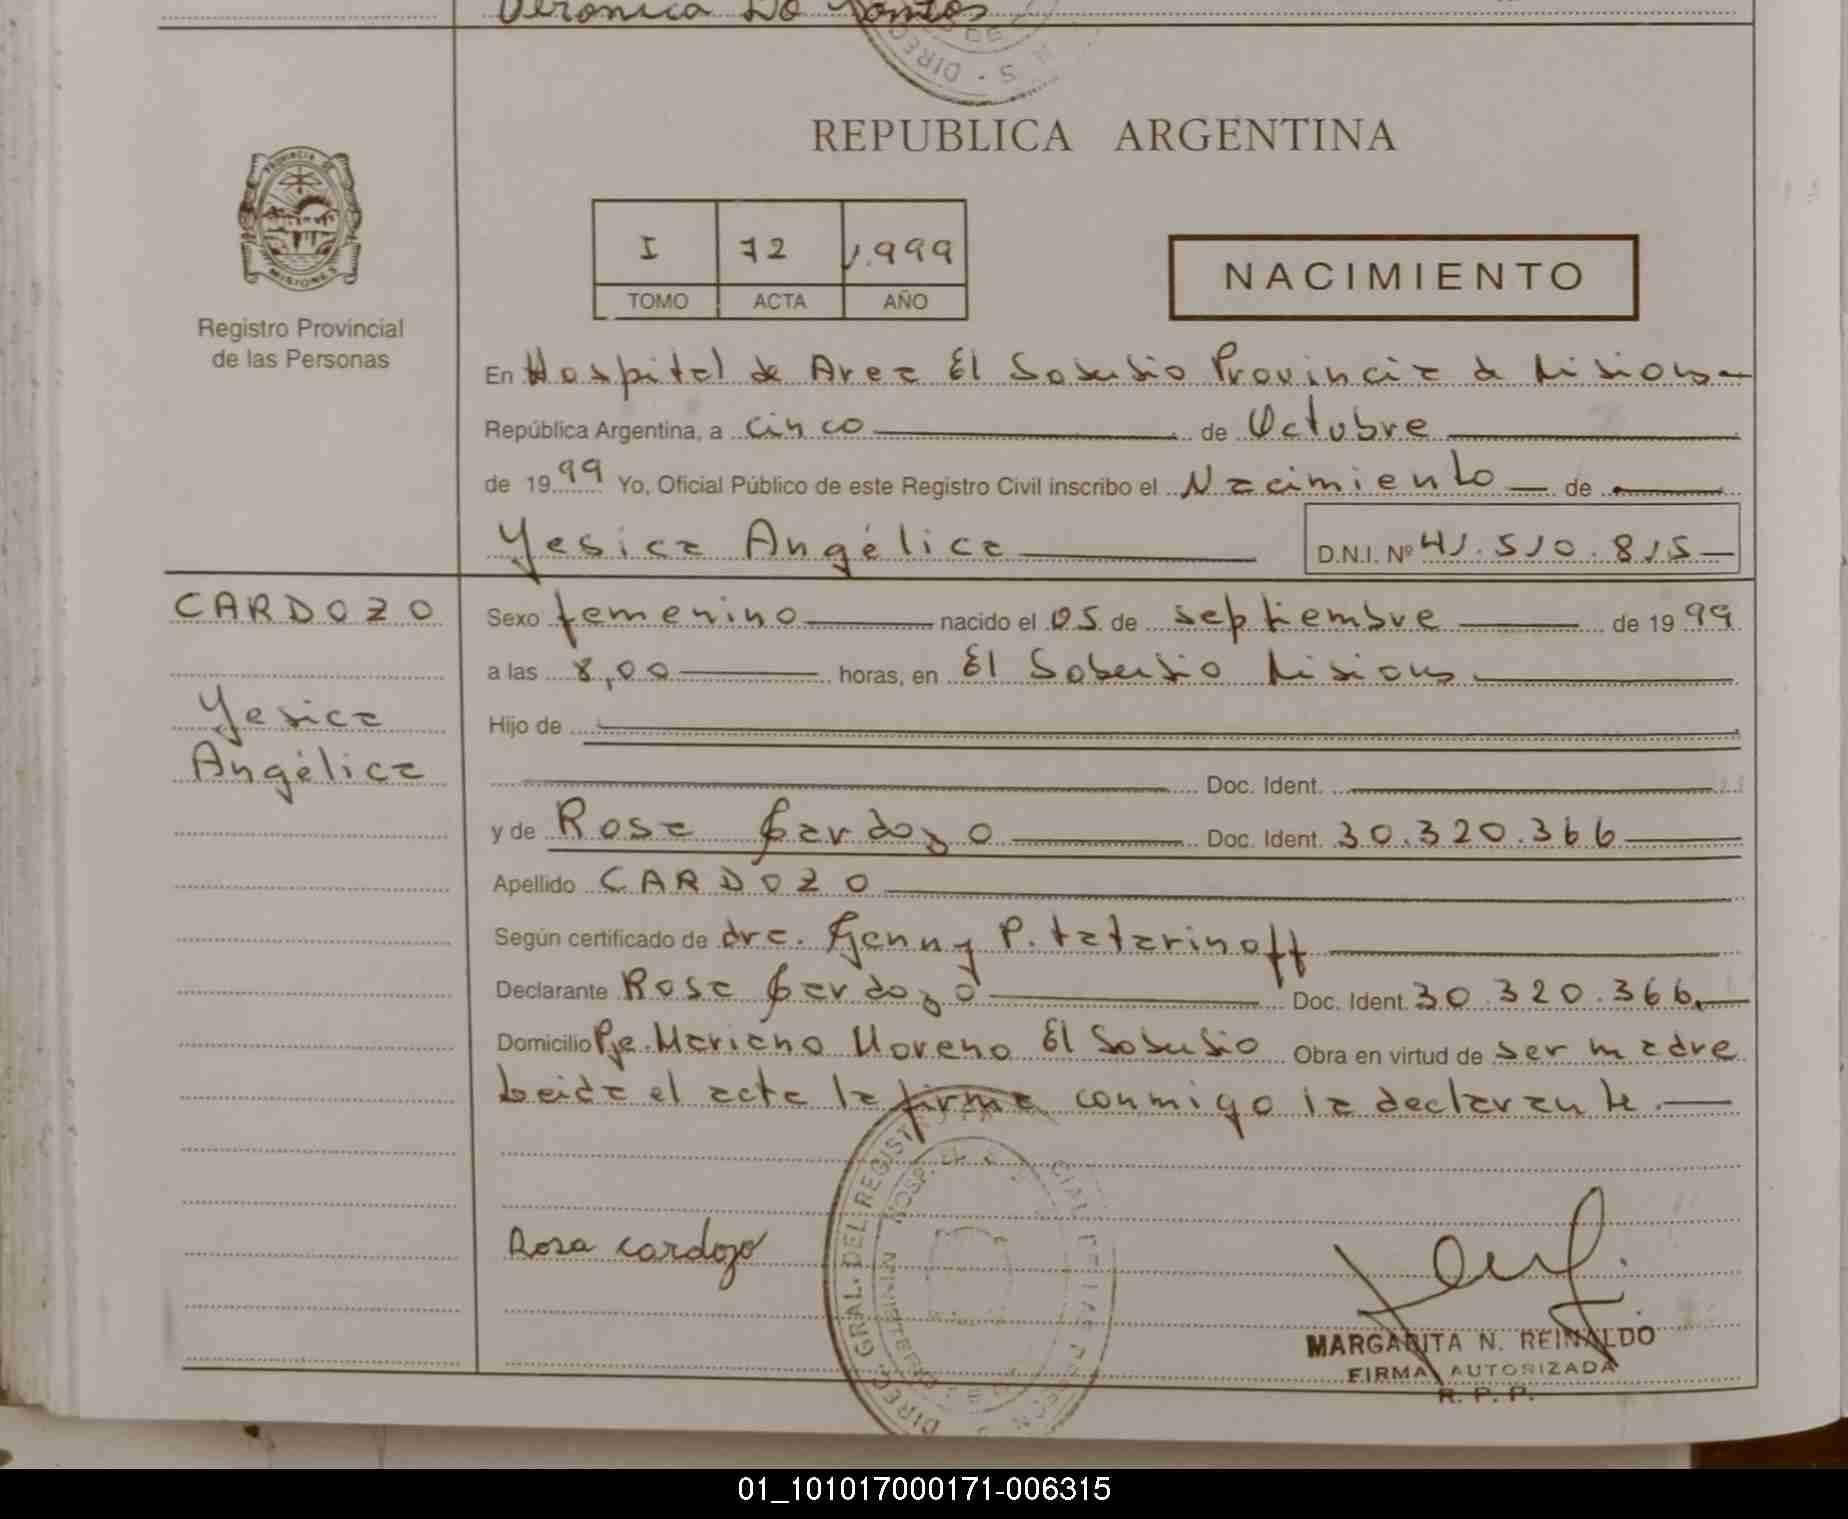 Veronica Do Santos
REPUBLICA ARGENTINA
PROVINCIA DE
MISIONES
Registro Provincial
de las Personas
I 72 1.999
TOMO ACTA AÑO
NACIMIENTO
En Hospital de Area El Soberbio Provincia de Misiones
República Argentina, a cinco de Octubre
de 1999 Yo, Oficial Público de este Registro Civil inscribo el Nacimiento de
Yesica Angélica D.N.I. Nº 41.510.815
CARDOZO
Yesica
Angélica
Sexo femenino nacido el 05 de septiembre de 1999
a las 8,00 horas, en El Soberbio Misiones
Hijo de
Doc. Ident.
y de Rosa Cardozo Doc. Ident. 30.320.366
Apellido CARDOZO
Según certificado de dra. Jenny P. tatarinoff
Declarante Rosa Cardozo Doc. Ident. 30.320.366
Domicilio Pje. Mariano Moreno El Soberbio Obra en virtud de ser madre
Leida el acta la firma conmigo la declarante.
Rosa Cardozo
DIREC. GRAL. DEL REGIST
HOSP.
MARGARITA N. REINALDO
FIRMA AUTORIZADA
R. P. P.
01_101017000171-006315